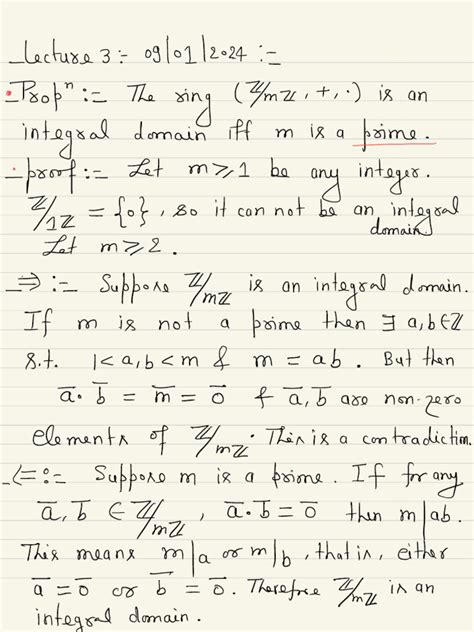 Lecture 3 :- 09/01/2024 :-
Propⁿ :- The ring (ℤ/mℤ, +, ·) is an
integral domain iff m is a prime.
proof :- Let m ⩾ 1 be any integer.
ℤ/1ℤ = {0}, so it can not be an integral
domain
Let m ⩾ 2.
⇒ :- Suppose ℤ/mℤ is an integral domain.
If m is not a prime then ∃ a,b∈ℤ
s.t. 1<a,b<m & m = ab. But then
a̅·b̅ = m̅ = 0̅ & a̅, b̅ are non-zero
elements of ℤ/mℤ. This is a contradiction.
⇐ :- Suppose m is a prime. If for any
a̅, b̅ ∈ ℤ/mℤ, a̅·b̅ = 0̅ then m|ab.
This means m|a or m|b, that is, either
a̅ = 0̅ or b̅ = 0̅. Therefore ℤ/mℤ is an
integral domain.